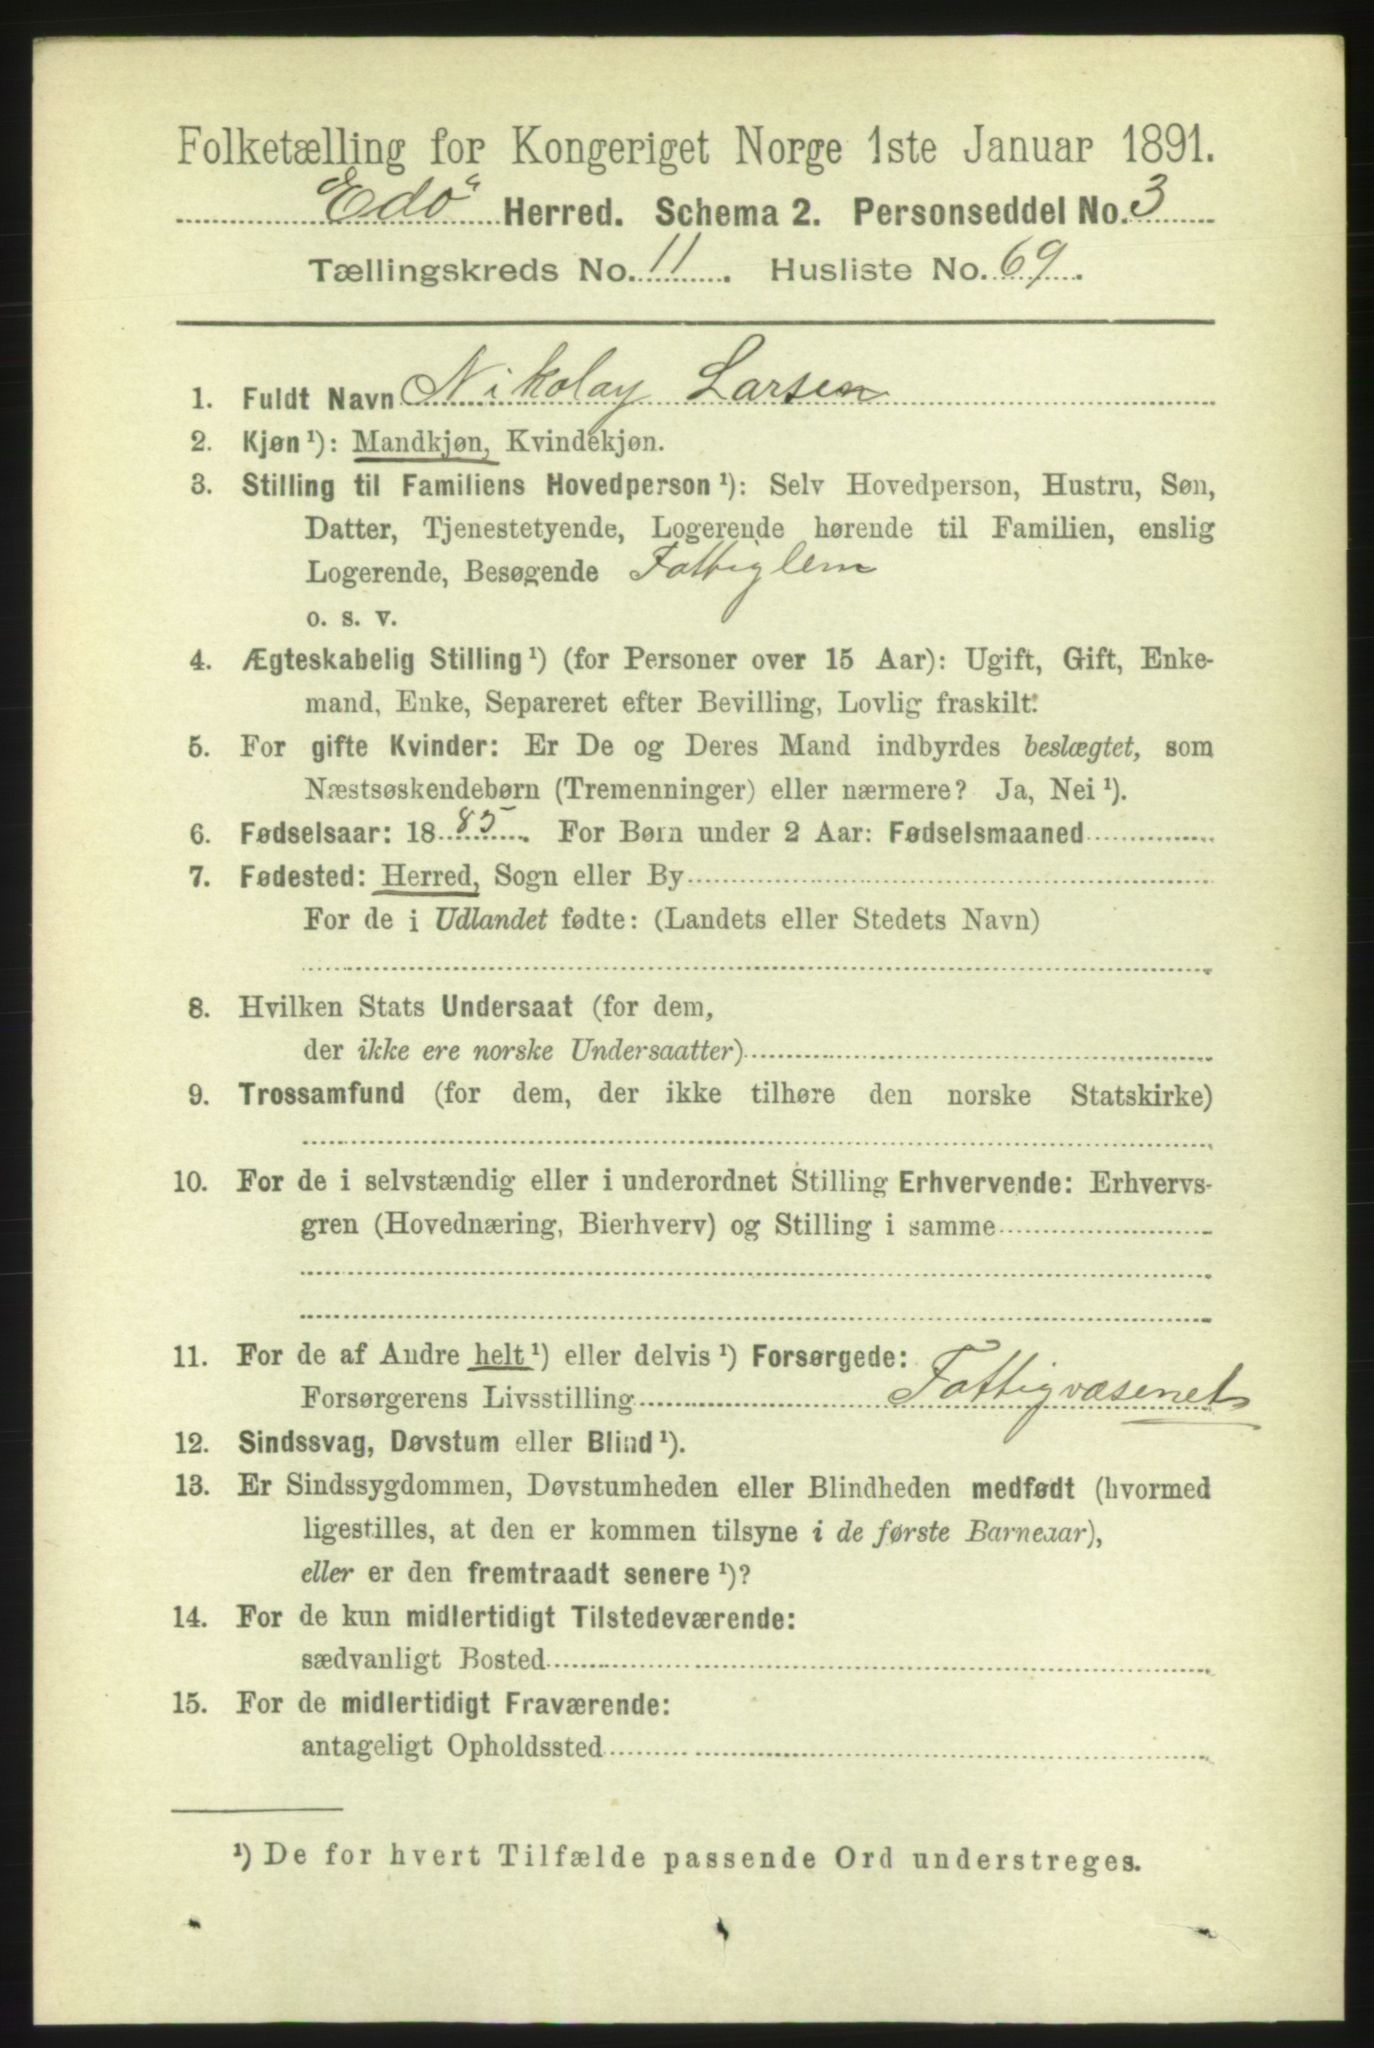 Folketælling for Kongeriget Norge 1ste Januar 1891.
Edö Herred. Schema 2. Personseddel No. 3
Tællingskreds No. 11. Husliste No. 69.
1. Fuldt Navn Nikolay Larsen
2. Kjøn¹): Mandkjøn, Kvindekjøn.
3. Stilling til Familiens Hovedperson¹): Selv Hovedperson, Hustru, Søn,
Datter, Tjenestetyende, Logerende hørende til Familien, enslig
Logerende, Besøgende Fattiglem
o. s. v.
4. Ægteskabelig Stilling¹) (for Personer over 15 Aar): Ugift, Gift, Enke-
mand, Enke, Separeret efter Bevilling, Lovlig fraskilt.
5. For gifte Kvinder: Er De og Deres Mand indbyrdes beslægtet, som
Næstsøskendebørn (Tremenninger) eller nærmere? Ja, Nei¹).
6. Fødselsaar: 1885. For Børn under 2 Aar: Fødselsmaaned
7. Fødested: Herred, Sogn eller By
For de i Udlandet fødte: (Landets eller Stedets Navn)
8. Hvilken Stats Undersaat (for dem,
der ikke ere norske Undersaatter)
9. Trossamfund (for dem, der ikke tilhøre den norske Statskirke)
10. For de i selvstændig eller i underordnet Stilling Erhvervende: Erhvervs-
gren (Hovednæring, Bierhverv) og Stilling i samme
11. For de af Andre helt¹) eller delvis¹) Forsørgede:
Forsørgerens Livsstilling Fattigvæsenet
12. Sindssvag, Døvstum eller Blind¹).
13. Er Sindssygdommen, Døvstumheden eller Blindheden medfødt (hvormed
ligestilles, at den er kommen tilsyne i de første Barneaar),
eller er den fremtraadt senere¹)?
14. For de kun midlertidigt Tilstedeværende:
sædvanligt Bosted
15. For de midlertidigt Fraværende:
antageligt Opholdssted
¹) De for hvert Tilfælde passende Ord understreges.